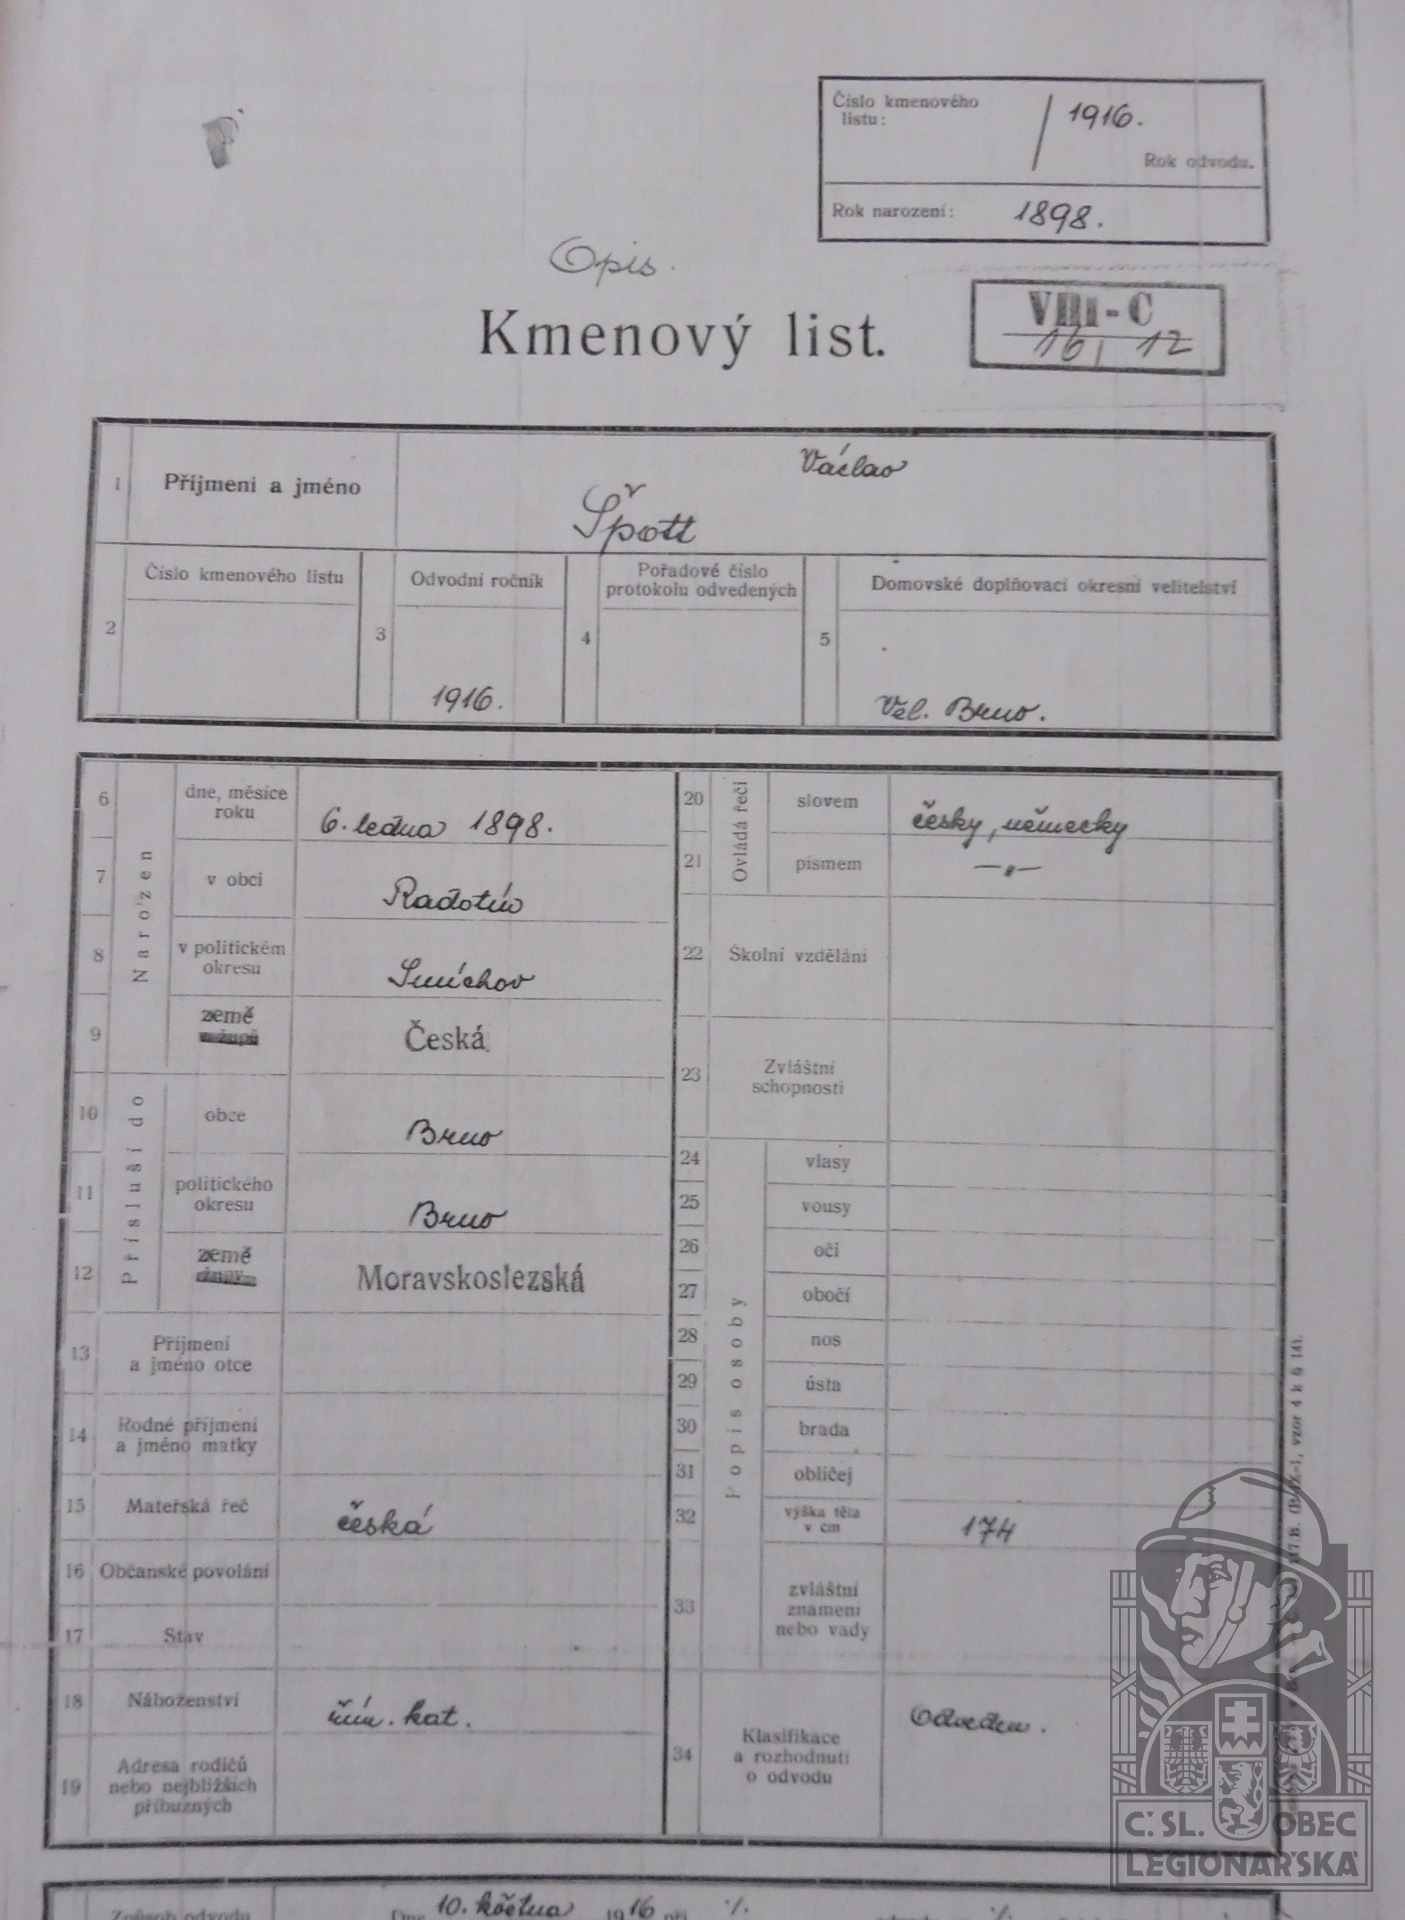 Číslo kmenového
listu:
/ 1916.
Rok odvodu.
Rok narození: 1898.
Opis.
Kmenový list.
VIII-C
16 / 12
1 Příjmení a jméno
Václav
Špott
2 Číslo kmenového listu
3 Odvodní ročník
1916.
4 Pořadové číslo
protokolu odvedených
5 Domovské doplňovací okresní velitelství
Vel. Brno.
Narozen
6 dne, měsíce
roku
6. ledna 1898.
7 v obci
Radotín
8 v politickém
okresu
Smíchov
9 země
Česká
Přísluší do
10 obce
Brno
11 politického
okresu
Brno
12 země
Moravskoslezská
13 Příjmení
a jméno otce
14 Rodné příjmení
a jméno matky
15 Mateřská řeč
česká
16 Občanské povolání
17 Stav
18 Náboženství
řím. kat.
19 Adresa rodičů
nebo nejbližších
příbuzných
Ovládá řeči
20 slovem
česky, německy
21 písmem
—„—
22 Školní vzdělání
23 Zvláštní
schopnosti
Popis osoby
24 vlasy
25 vousy
26 oči
27 obočí
28 nos
29 ústa
30 brada
31 obličej
32 výška těla
v cm
174
33 zvláštní
znamení
nebo vady
34 Klasifikace
a rozhodnutí
o odvodu
Odveden.
vzor 4 k § 141.
Č. SL. OBEC
LEGIONÁŘSKÁ
Způsob odvodu
Dne 10. května 1916 při